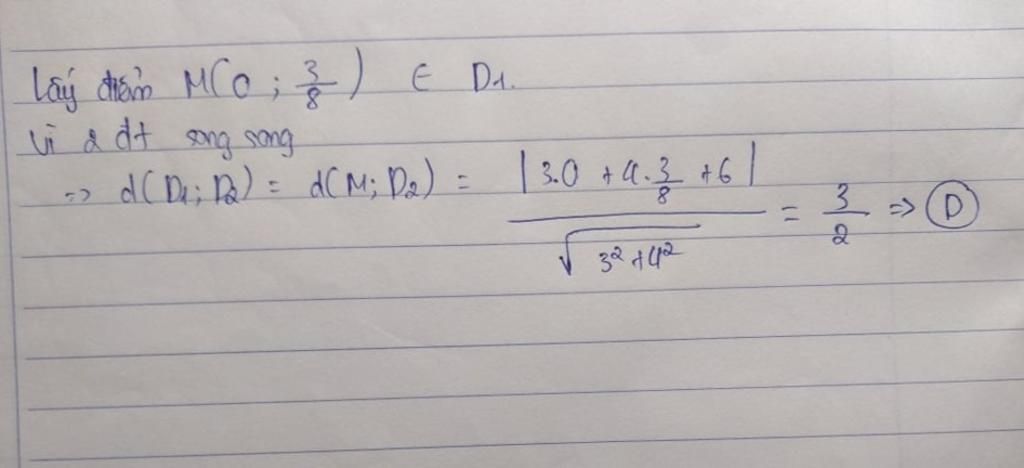 Lấy điểm M(0 ; 3/8) ∈ D1.
Vì 2 đt song song
=> d(D1; D2) = d(M; D2) = |3.0 + 4.3/8 + 6| / √(3² + 4²) = 3/2 => D